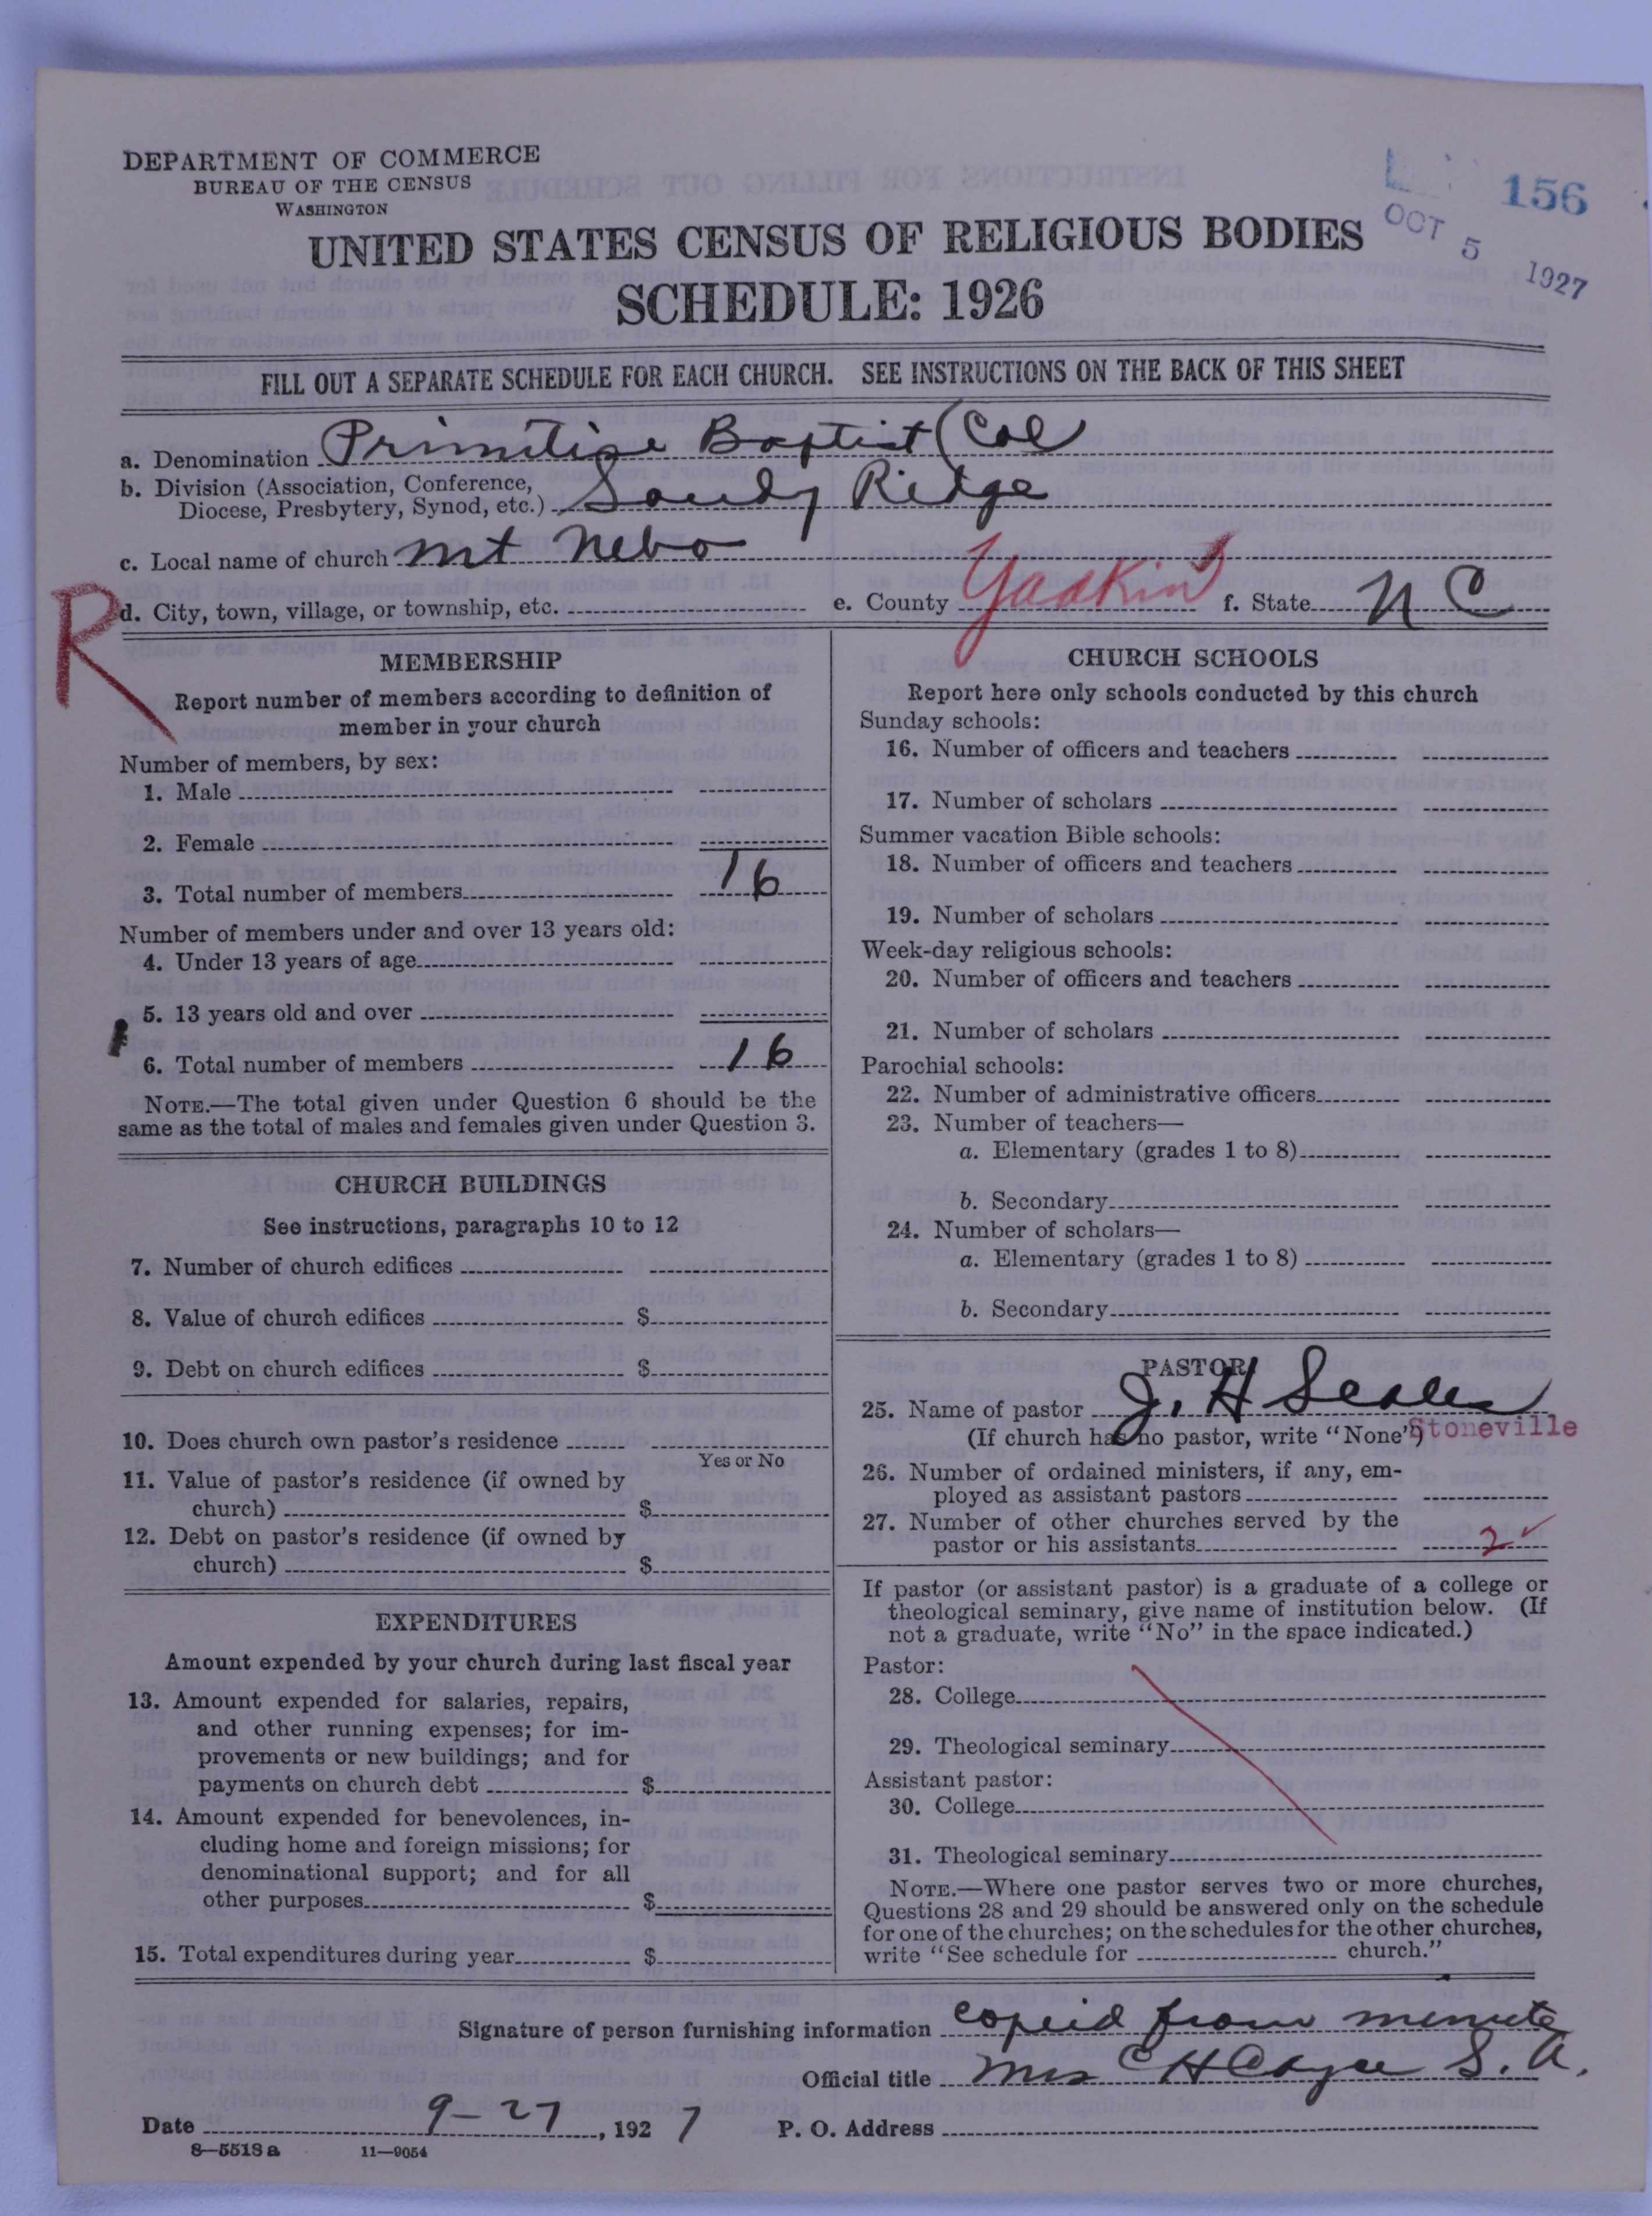 DEPARTMENT OF COMMERCE
BUREAU OF THE CENSUS
WASHINGTON
156
OCT 5 1927
UNITED STATES CENSUS OF RELIGIOUS BODIES
SCHEDULE: 1926
FILL OUT A SEPARATE SCHEDULE FOR EACH CHURCH. SEE INSTRUCTIONS ON THE BACK OF THIS SHEET
a. Denomination Primitive Baptist (Col
b. Division (Association, Conference,
Diocese, Presbytery, Synod, etc.) Sandy Ridge
c. Local name of church mt Nebo
R
d. City, town, village, or township, etc. e. County Yadkin f. State N C
MEMBERSHIP
Report number of members according to definition of
member in your church
Number of members, by sex:
1. Male
2. Female
3. Total number of members 16
Number of members under and over 13 years old:
4. Under 13 years of age
5. 13 years old and over
6. Total number of members 16
NOTE.—The total given under Question 6 should be the
same as the total of males and females given under Question 3.
CHURCH BUILDINGS
See instructions, paragraphs 10 to 12
7. Number of church edifices
8. Value of church edifices $
9. Debt on church edifices $
10. Does church own pastor's residence
Yes or No
11. Value of pastor's residence (if owned by
church) $
12. Debt on pastor's residence (if owned by
church) $
EXPENDITURES
Amount expended by your church during last fiscal year
13. Amount expended for salaries, repairs,
and other running expenses; for im-
provements or new buildings; and for
payments on church debt $
14. Amount expended for benevolences, in-
cluding home and foreign missions; for
denominational support; and for all
other purposes $
15. Total expenditures during year $
CHURCH SCHOOLS
Report here only schools conducted by this church
Sunday schools:
16. Number of officers and teachers
17. Number of scholars
Summer vacation Bible schools:
18. Number of officers and teachers
19. Number of scholars
Week-day religious schools:
20. Number of officers and teachers
21. Number of scholars
Parochial schools:
22. Number of administrative officers
23. Number of teachers—
a. Elementary (grades 1 to 8)
b. Secondary
24. Number of scholars—
a. Elementary (grades 1 to 8)
b. Secondary
PASTOR
25. Name of pastor J. H Scales
(If church has no pastor, write "None") Stoneville
26. Number of ordained ministers, if any, em-
ployed as assistant pastors
27. Number of other churches served by the
pastor or his assistants 2 ✓
If pastor (or assistant pastor) is a graduate of a college or
theological seminary, give name of institution below. (If
not a graduate, write "No" in the space indicated.)
Pastor:
28. College
29. Theological seminary
Assistant pastor:
30. College
31. Theological seminary
NOTE.—Where one pastor serves two or more churches,
Questions 28 and 29 should be answered only on the schedule
for one of the churches; on the schedules for the other churches,
write "See schedule for church."
Signature of person furnishing information copeid from minute
Official title Mrs C H Cayce S. A.
Date 9-27, 1927 P. O. Address
8—5518 a 11—9054